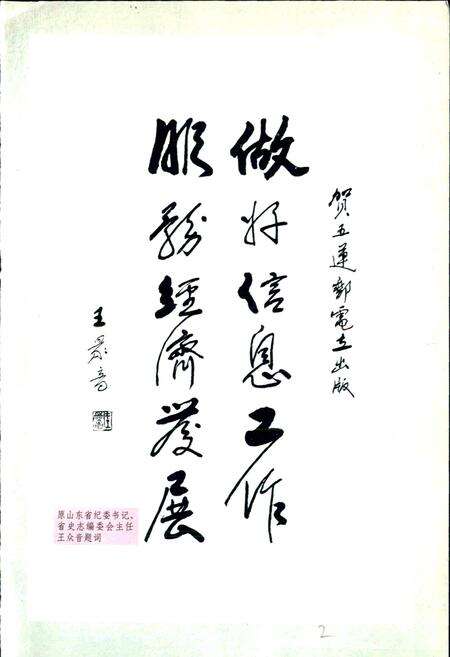 贺五莲邮電志出版
做好信息工作
服務經濟發展
王众音
原山东省纪委书记、
省史志编委会主任
王众音题词
2